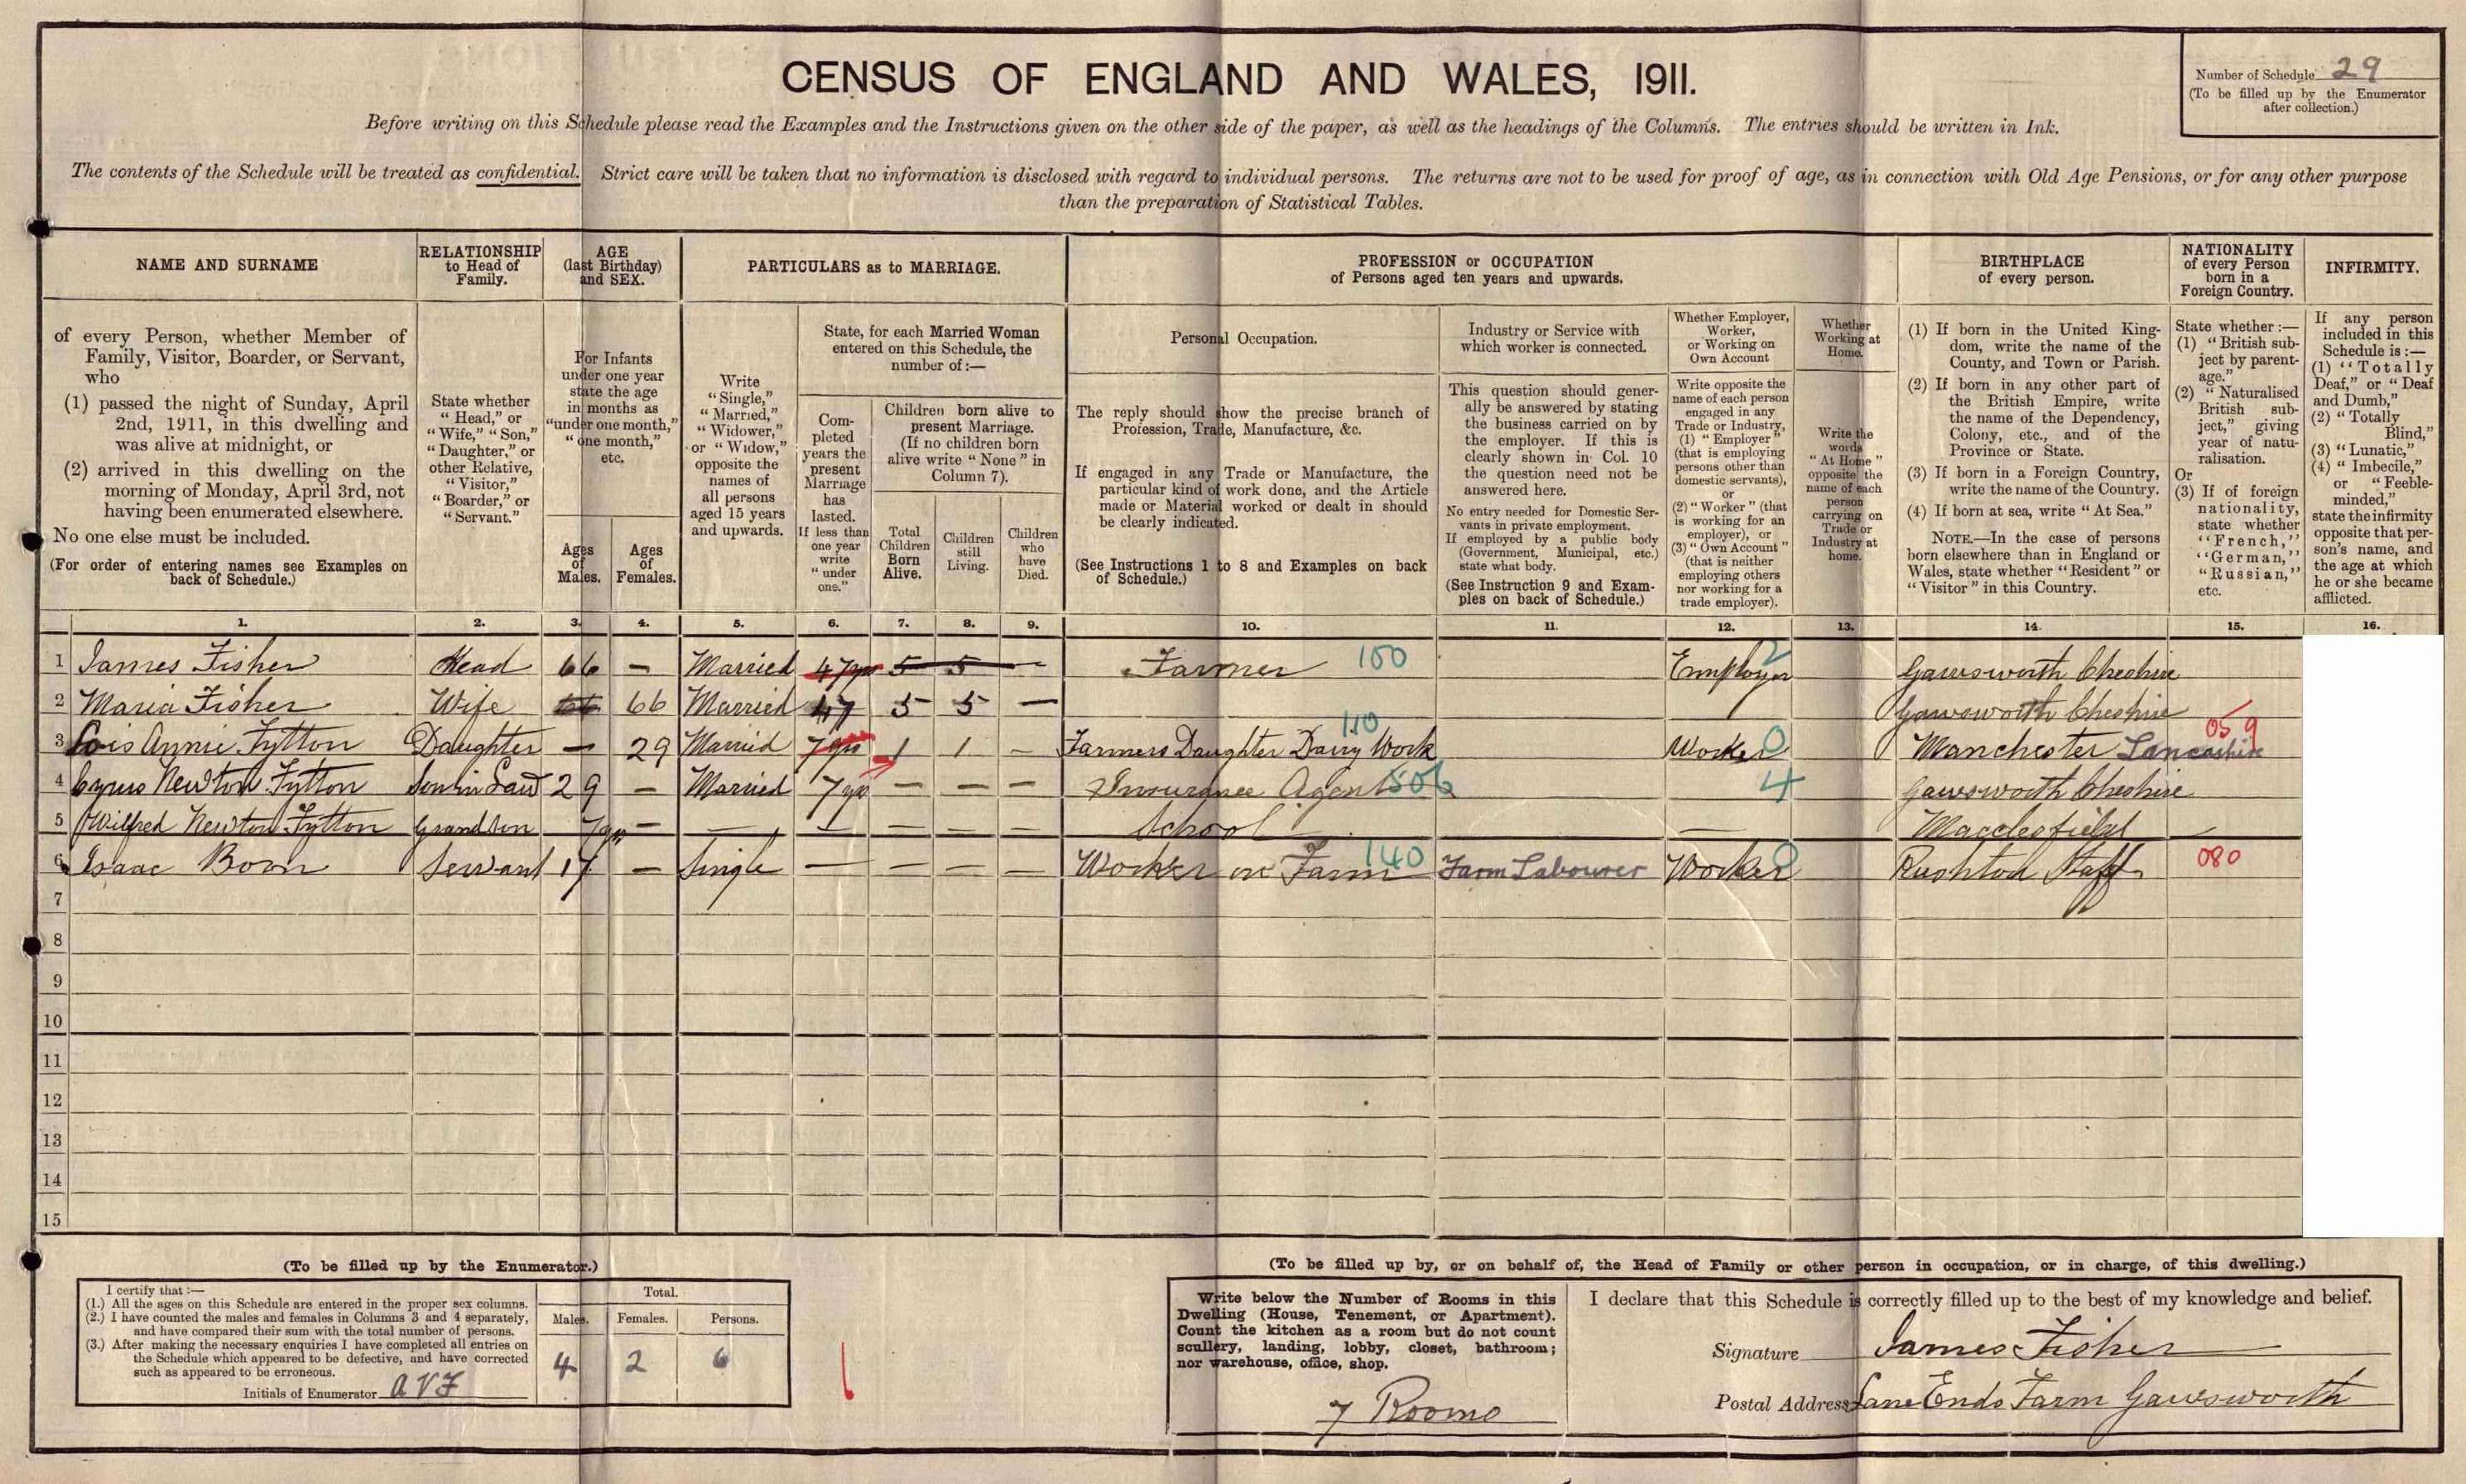 CENSUS OF ENGLAND AND WALES, 1911.
Number of Schedule 29
(To be filled up by the Enumerator
after collection.)
Before writing on this Schedule please read the Examples and the Instructions given on the other side of the paper, as well as the headings of the Columns. The entries should be written in Ink.
The contents of the Schedule will be treated as confidential. Strict care will be taken that no information is disclosed with regard to individual persons. The returns are not to be used for proof of age, as in connection with Old Age Pensions, or for any other purpose
than the preparation of Statistical Tables.
NAME AND SURNAME
of every Person, whether Member of
Family, Visitor, Boarder, or Servant,
who
(1) passed the night of Sunday, April
2nd, 1911, in this dwelling and
was alive at midnight, or
(2) arrived in this dwelling on the
morning of Monday, April 3rd, not
having been enumerated elsewhere.
No one else must be included.
(For order of entering names see Examples on
back of Schedule.)
RELATIONSHIP
to Head of
Family.
State whether
"Head," or
"Wife," "Son,"
"Daughter," or
other Relative,
"Visitor,"
"Boarder," or
"Servant."
AGE
(last Birthday)
and SEX.
For Infants
under one year
state the age
in months as
"under one month,"
"one month,"
etc.
Ages
of
Males.
Ages
of
Females.
PARTICULARS as to MARRIAGE.
Write
"Single,"
"Married,"
"Widower,"
or "Widow,"
opposite the
names of
all persons
aged 15 years
and upwards.
State, for each Married Woman
entered on this Schedule, the
number of:—
Com-
pleted
years the
present
Marriage
has
lasted.
If less than
one year
write
"under
one."
Children born alive to
present Marriage.
(If no children born
alive write "None" in
Column 7).
Total
Children
Born
Alive.
Children
still
Living.
Children
who
have
Died.
PROFESSION or OCCUPATION
of Persons aged ten years and upwards.
Personal Occupation.
The reply should show the precise branch of
Profession, Trade, Manufacture, &c.
If engaged in any Trade or Manufacture, the
particular kind of work done, and the Article
made or Material worked or dealt in should
be clearly indicated.
(See Instructions 1 to 8 and Examples on back
of Schedule.)
Industry or Service with
which worker is connected.
This question should gener-
ally be answered by stating
the business carried on by
the employer. If this is
clearly shown in Col. 10
the question need not be
answered here.
No entry needed for Domestic Ser-
vants in private employment.
If employed by a public body
(Government, Municipal, etc.)
state what body.
(See Instruction 9 and Exam-
ples on back of Schedule.)
Whether Employer,
Worker,
or Working on
Own Account
Write opposite the
name of each person
engaged in any
Trade or Industry,
(1) "Employer"
(that is employing
persons other than
domestic servants),
or
(2) "Worker" (that
is working for an
employer), or
(3) "Own Account"
(that is neither
employing others
nor working for a
trade employer).
Whether
Working at
Home.
Write the
words
"At Home"
opposite the
name of each
person
carrying on
Trade or
Industry at
home.
BIRTHPLACE
of every person.
(1) If born in the United King-
dom, write the name of the
County, and Town or Parish.
(2) If born in any other part of
the British Empire, write
the name of the Dependency,
Colony, etc., and of the
Province or State.
(3) If born in a Foreign Country,
write the name of the Country.
(4) If born at sea, write "At Sea."
NOTE.—In the case of persons
born elsewhere than in England or
Wales, state whether "Resident" or
"Visitor" in this Country.
NATIONALITY
of every Person
born in a
Foreign Country.
State whether :—
(1) "British sub-
ject by parent-
age."
(2) "Naturalised
British sub-
ject," giving
year of natu-
ralisation.
Or
(3) If of foreign
nationality,
state whether
"French,"
"German,"
"Russian,"
etc.
INFIRMITY.
If any person
included in this
Schedule is :—
(1) "Totally
Deaf," or "Deaf
and Dumb,"
(2) "Totally
Blind,"
(3) "Lunatic,"
(4) "Imbecile,"
or "Feeble-
minded,"
state the infirmity
opposite that per-
son's name, and
the age at which
he or she became
afflicted.
1. 2. 3. 4. 5. 6. 7. 8. 9. 10. 11. 12. 13. 14. 15. 16.
1 James Fisher Head 66 — Married 47yrs 5 5 — Farmer 100 Employer 2 Gawsworth Cheshire
2 Maria Fisher Wife 66 Married 47 5 5 — Gawsworth Cheshire
3 Lois Annie Fytton Daughter — 29 Married 7yrs 1 1 — Farmers Daughter Dairy Work 110 Worker 0 Manchester Lancashire 059
4 Cyrus Newton Fytton Son in Law 29 — Married 7yrs — — — Insurance Agent 506 4 Gawsworth Cheshire
5 Wilfred Newton Fytton Grandson 7yrs — — — — — — School — Macclesfield —
6 Isaac Boon Servant 17 — Single — — — — Worker on Farm 140 Farm Labourer Worker Rushton Staff 080
7
8
9
10
11
12
13
14
15
(To be filled up by the Enumerator.)
I certify that :—
(1.) All the ages on this Schedule are entered in the proper sex columns.
(2.) I have counted the males and females in Columns 3 and 4 separately,
and have compared their sum with the total number of persons.
(3.) After making the necessary enquiries I have completed all entries on
the Schedule which appeared to be defective, and have corrected
such as appeared to be erroneous.
Initials of Enumerator AVF
Total.
Males. Females. Persons.
4 2 6
(To be filled up by, or on behalf of, the Head of Family or other person in occupation, or in charge, of this dwelling.)
Write below the Number of Rooms in this
Dwelling (House, Tenement, or Apartment).
Count the kitchen as a room but do not count
scullery, landing, lobby, closet, bathroom;
nor warehouse, office, shop.
7 Rooms
I declare that this Schedule is correctly filled up to the best of my knowledge and belief.
Signature James Fisher
Postal Address Lane Ends Farm Gawsworth